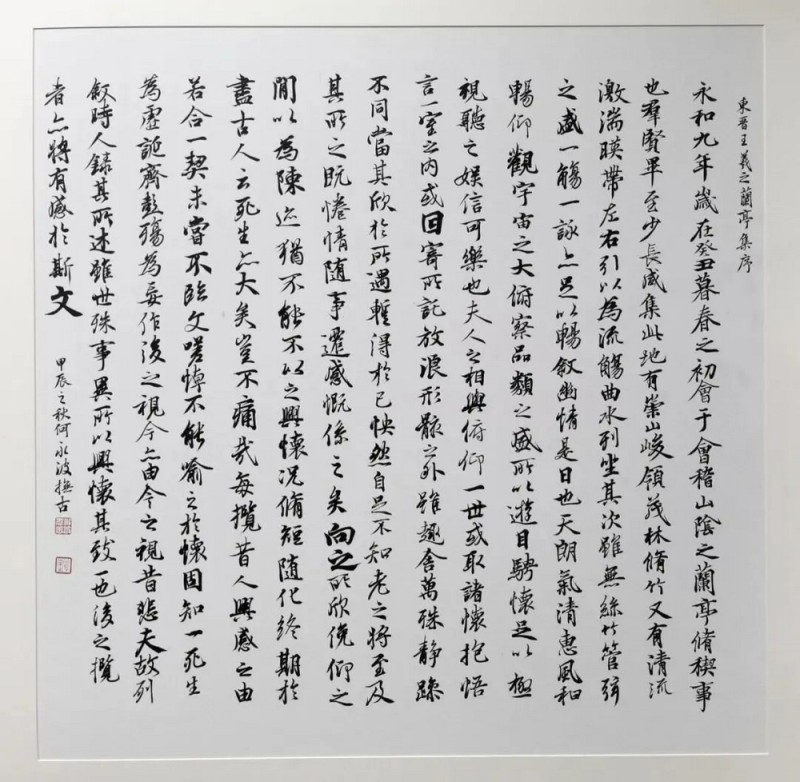 東晉王羲之蘭亭集序
永和九年歲在癸丑暮春之初會于會稽山陰之蘭亭脩稧事
也羣賢畢至少長咸集此地有崇山峻領茂林脩竹又有清流
激湍暎帶左右引以為流觴曲水列坐其次雖無絲竹管弦
之盛一觴一詠亦足以暢敘幽情是日也天朗氣清惠風和
暢仰觀宇宙之大俯察品類之盛所以遊目騁懷足以極
視聽之娛信可樂也夫人之相與俯仰一世或取諸懷抱悟
言一室之內或因寄所託放浪形骸之外雖趣舍萬殊靜躁
不同當其欣於所遇蹔得於己怏然自足不知老之將至及
其所之既惓情隨事遷感慨係之矣向之所欣俛仰之
閒以為陳迹猶不能不以之興懷況脩短隨化終期於
盡古人云死生亦大矣豈不痛哉每攬昔人興感之由
若合一契未嘗不臨文嗟悼不能喻之於懷固知一死生
為虛誕齊彭殤為妄作後之視今亦由今之視昔悲夫故列
敘時人錄其所述雖世殊事異所以興懷其致一也後之攬
者亦將有感於斯文
甲辰之秋何永波撫古